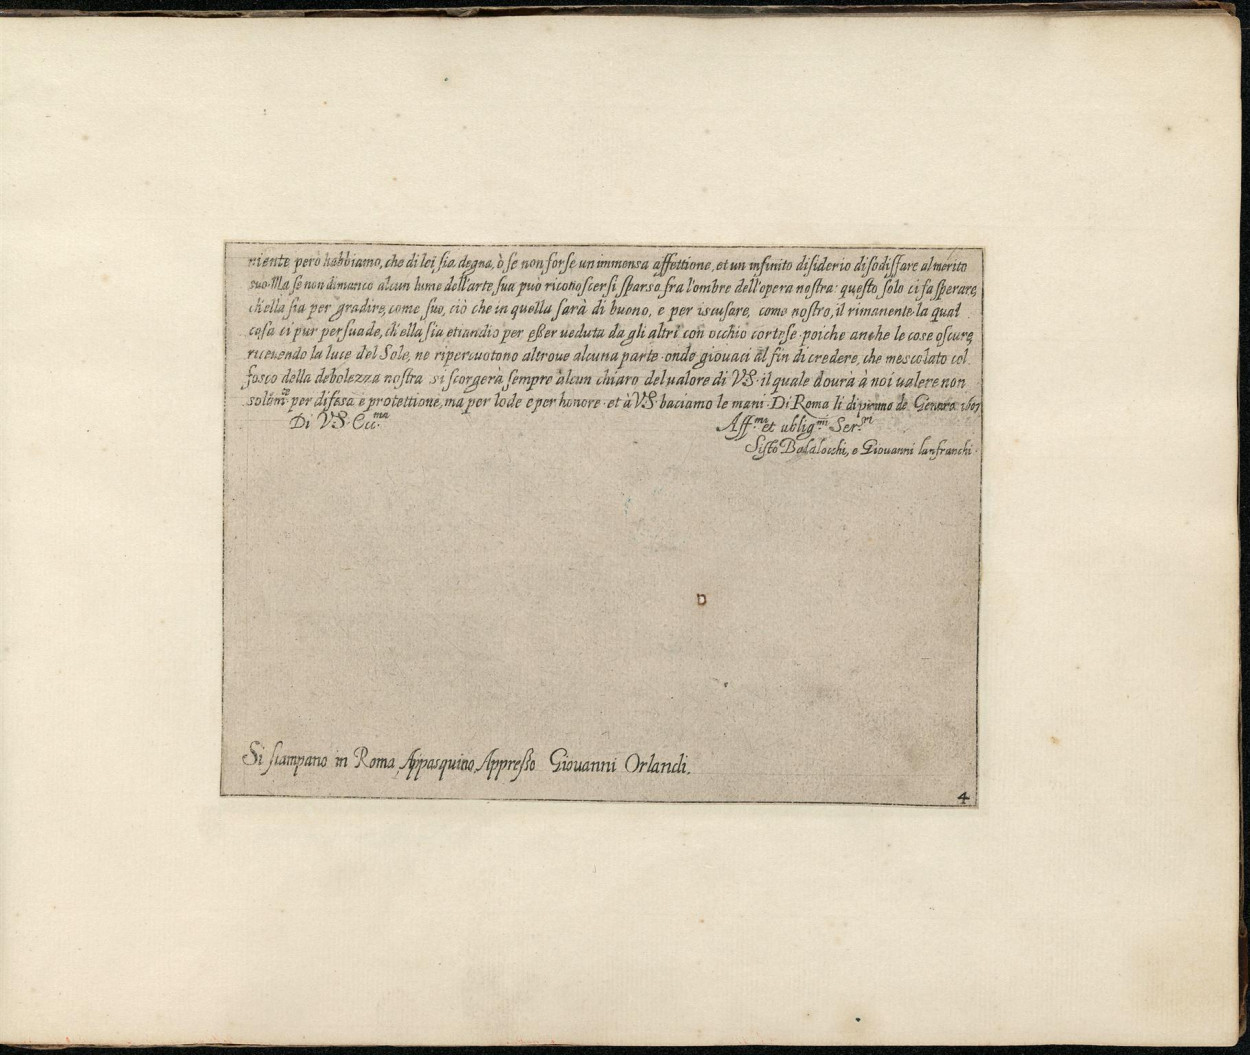 niente però habbiamo, che di lei sia degna, ò se non forse un immensa affettione, et un infinito disiderio di sodisfare al merito
suo. Ma se non dimanco alcun lume dell'arte sua può riconoscersi sparso fra l'ombre dell'opera nostra: questo solo ci fa sperare,
ch'ella sia per gradire, come suo, ciò che in quella sarà di buono, e per iscusare, come nostro, il rimanente. la qual
cosa ci pur persuade, ch'ella sia etiandio per eßer ueduta da gli altri con occhio cortese. poiche anche le cose oscure,
riceuendo la luce del Sole, ne ripercuotono altroue alcuna parte. onde giouaci al fin di credere, che mescolato col
fosco della debolezza nostra si scorgerà sempre alcun chiaro del ualore di VS. il quale dourà à noi ualere non
solam.te per difesa e protettione, ma per lode e per honore. et à VS. baciamo le mani. Di Roma li di primo de Genaro 1607
Di VS. Ecc.ma
Aff.mi et ublig.mi Ser.ri
Sisto Badalocchi, e Giouanni lanfranchi.
Si stampano in Roma, Appasquino, Appreßo Giouanni Orlandi.
4